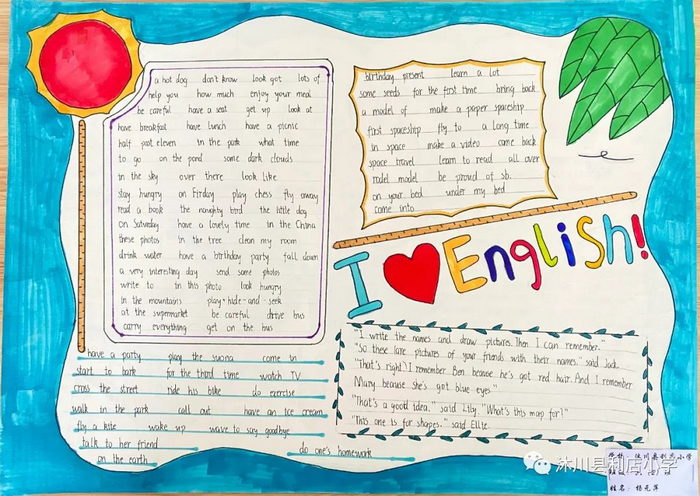 a hot dog don't know look got lots of
help you how much enjoy your meal
be careful have a seat get up look at
have breakfast have lunch have a picnic
half past eleven in the park what time
to go on the pond some dark clouds
in the sky over there look like
stay hungry on Firday play chess fly away
read a book the naughty bird the little dog
on Saturday have a lovely time in the China
these photos in the tree clean my room
drink water have a birthday party fall down
a very interesting day send some photos
write to in this photo look hungry
in the mountains play-hide-and-seek
at the supermarket be careful drive bus
carry everything get on the bus
have a party play the suona come in
start to bark for the third time watch TV
cross the street ride his bike do exercise
walk in the park call out have an ice cream
fly a kite wake up wave to say goodbye
talk to her friend do one's homework
on the earth
birthday present learn a lot
some seeds for the first time bring back
a model of make a paper spaceship
first spaceship fly to a long time
in space make a video come back
space travel learn to read all over
model be proud of sb.
on your bed under my bed
come into
I ❤ English!
"I write the names and draw pictures. Then I can remember."
"So these are pictures of your friends with their names." said Jack.
"That's right. I remember Ben because he's got red hair. And I remember
Mary because she's got blue eyes."
"That's a good idea." said Lily, "What's this map for?"
"This one is for shapes." said Ellie.
沐川县利店小学
姓名: 杨